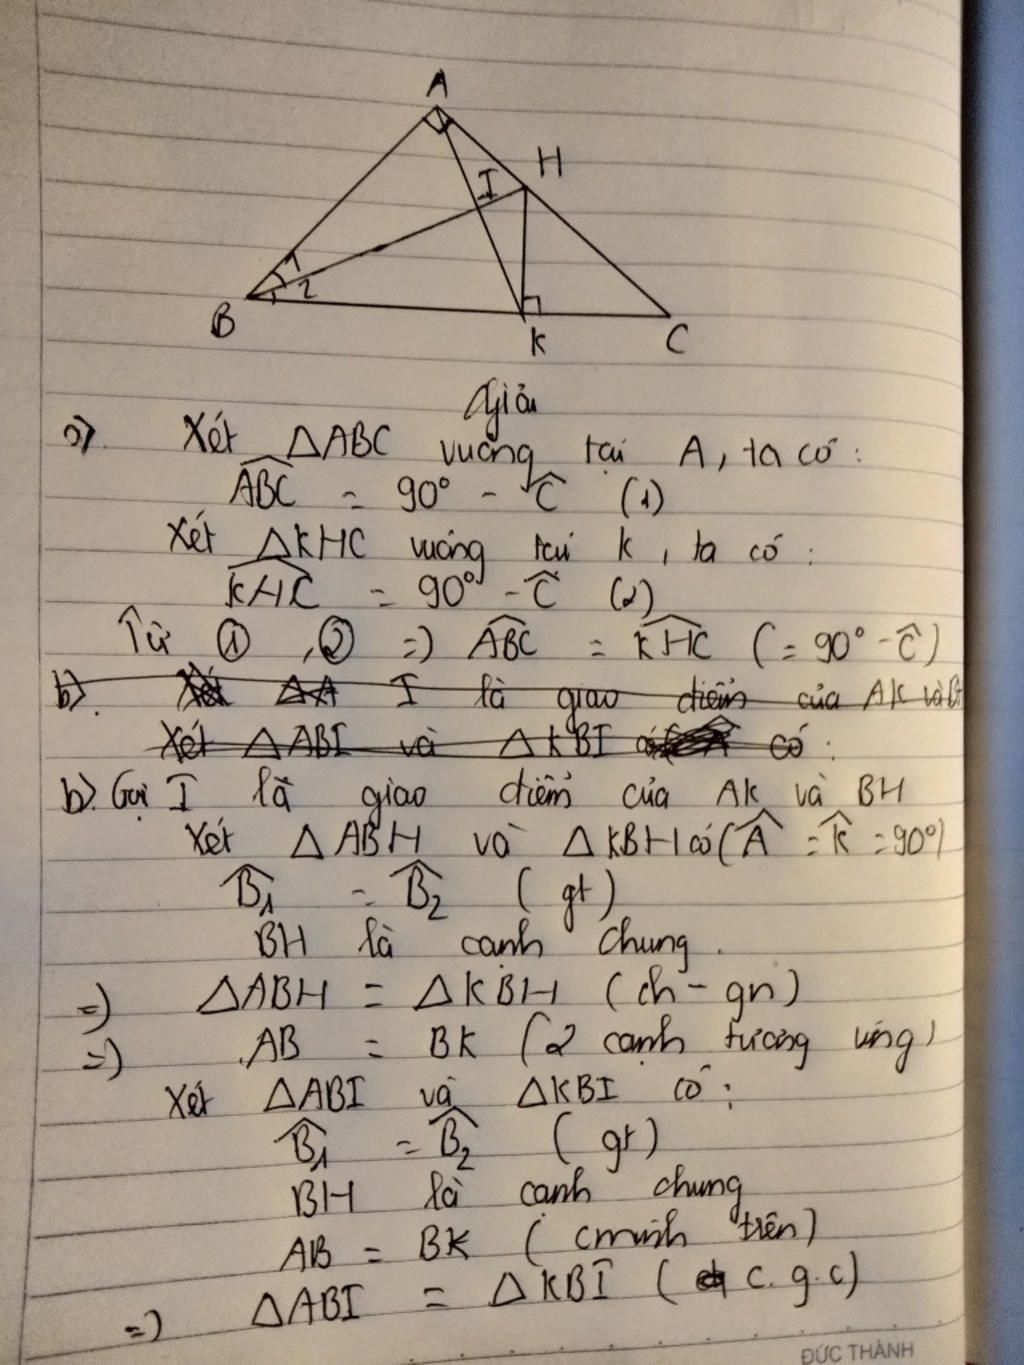 A
H
I
1
2
B
K
C
Giải
a) Xét △ABC vuông tại A, ta có:
\widehat{ABC} = 90° - \widehat{C} (1)
Xét △KHC vuông tại K, ta có:
\widehat{KHC} = 90° - \widehat{C} (2)
Từ ①, ② => \widehat{ABC} = \widehat{KHC} (= 90° - \widehat{C})
b). Xét △A I là giao điểm của AK và B
Xét △ABI và △KBI có:
b). Gọi I là giao điểm của AK và BH
Xét △ABH và △KBH có (\widehat{A} = \widehat{K} = 90°)
\widehat{B}₁ = \widehat{B}₂ (gt)
BH là cạnh chung.
=) △ABH = △KBH (ch - gn)
=) AB = BK (2 cạnh tương ứng)
Xét △ABI và △KBI có:
\widehat{B}₁ = \widehat{B}₂ (gt)
BH là cạnh chung
AB = BK (cminh trên)
=) △ABI = △KBI (c.g.c)
ĐỨC THÀNH